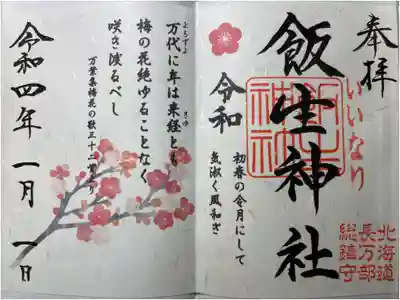 奉拝
飯生神社
いいなり
北海道
長万部
総鎮守
令和
初春の令月にして
気淑く風和ぎ
よろずよ
万代に年は来経とも
きゆ
梅の花絶ゆることなく
咲き渡るべし
万葉集梅花の歌三十二首より
令和四年一月一日